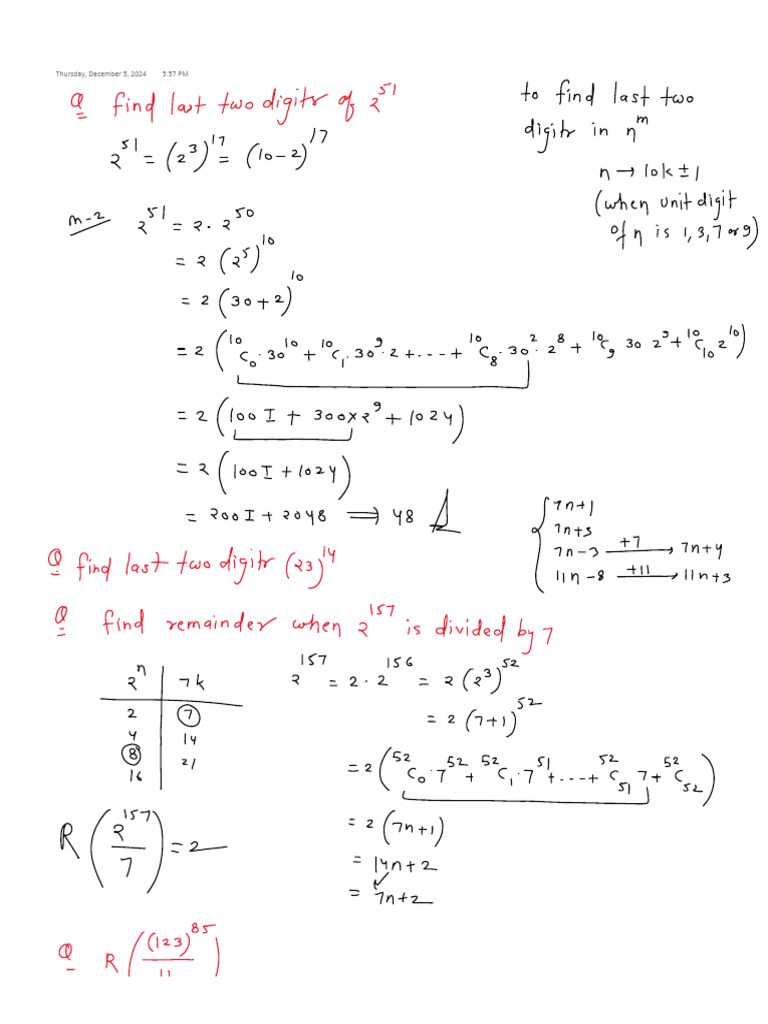 Thursday, December 5, 2024 3:37 PM
Q find last two digits of 2^51
2^51 = (2^3)^17 = (10-2)^17
to find last two
digits in n^m
n → 10k ± 1
(when unit digit
of n is 1, 3, 7 or 9)
m-2 2^51 = 2 · 2^50
= 2 (2^5)^10
= 2 (30+2)^10
= 2 (^10C_0 · 30^10 + ^10C_1 · 30^9 · 2 + --- + ^10C_8 · 30^2 · 2^8 + ^10C_9 30 2^9 + ^10C_10 2^10)
= 2 (100I + 300×2^9 + 1024)
= 2 (100I + 1024)
= 200I + 2048 ⟹ 48
7n+1
7n+3
7n-3 +7→ 7n+4
11n-8 +11→ 11n+3
Q find last two digits (23)^14
Q find remainder when 2^157 is divided by 7
2^n | 7k
2 | 7
4 | 14
8 | 21
16
2^157 = 2 · 2^156 = 2 (2^3)^52
= 2 (7+1)^52
= 2 (^52C_0 · 7^52 + ^52C_1 · 7^51 + --- + ^52C_51 7 + ^52C_52)
= 2 (7n+1)
= 14n+2
= 7n+2
R (2^157 / 7) = 2
Q R ((123)^85 / 11)